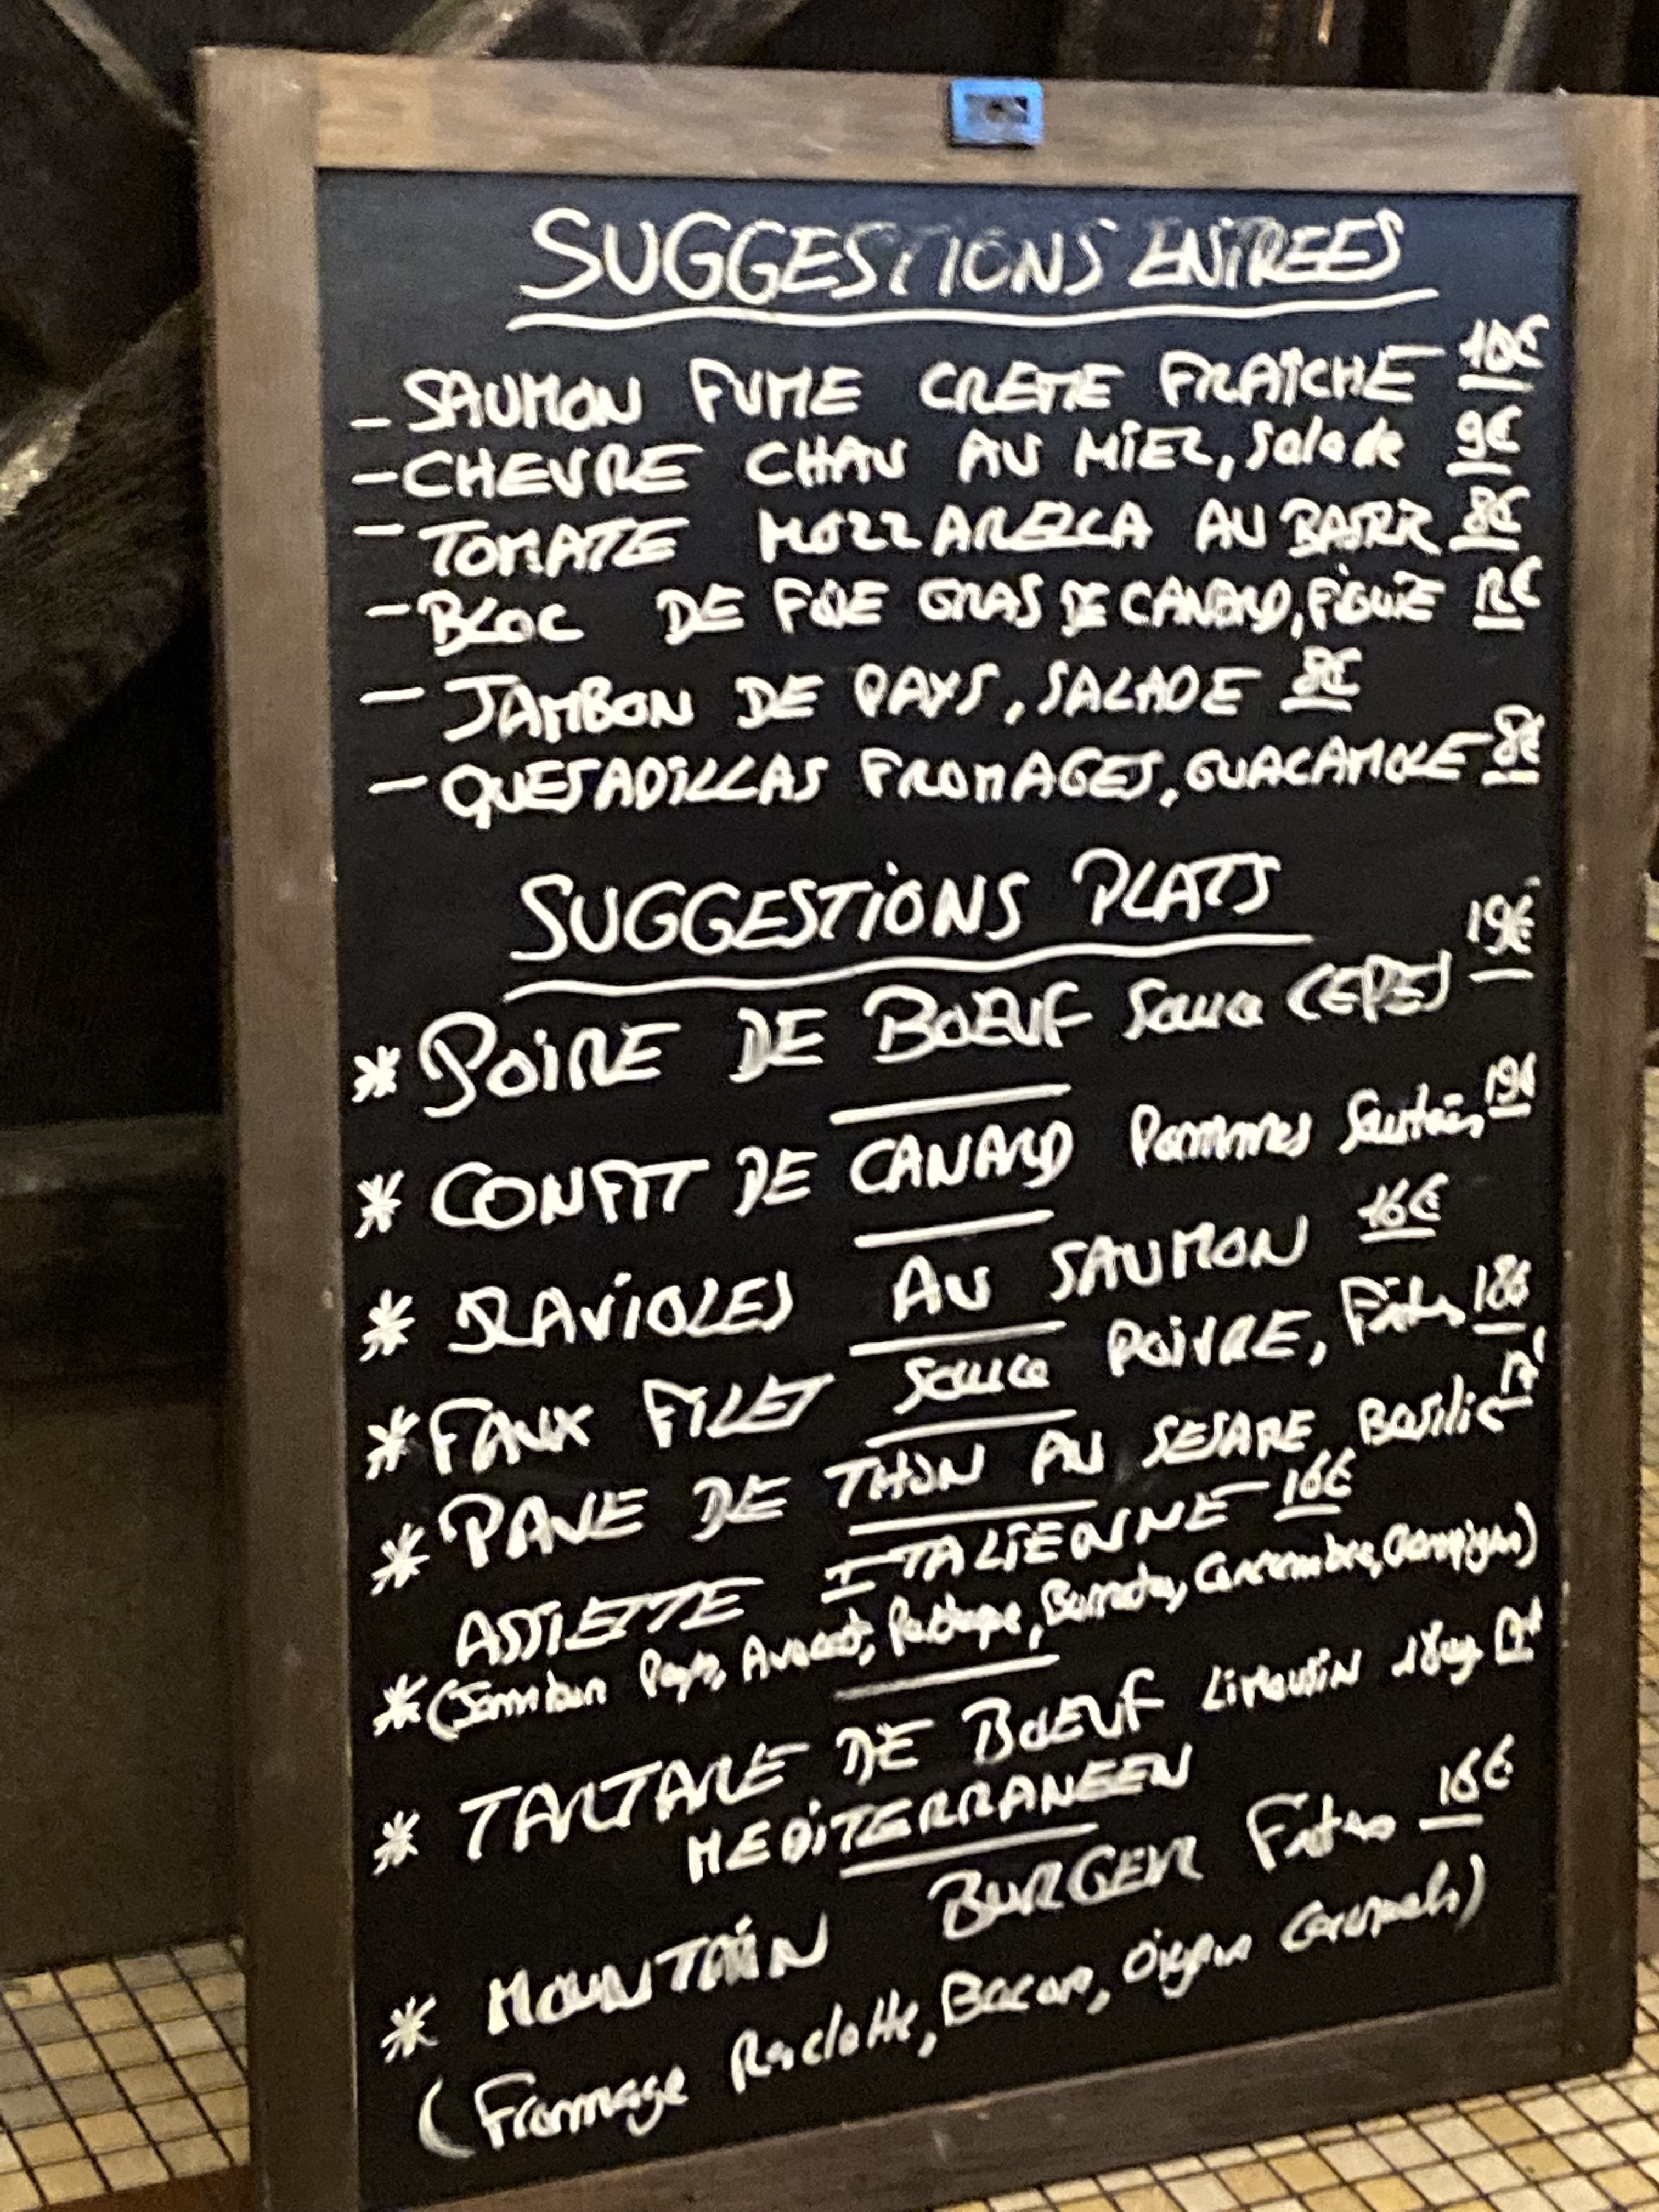 SUGGESTIONS ENTREES
- SAUMON FUME CREME FRAÎCHE 10€
- CHEVRE CHAU AU MIEL, Salade 9€
- TOMATE MOZZARELLA AU BASILIC 8€
- BLOC DE FOIE GRAS DE CANARD, FIGUE 12€
- JAMBON DE PAYS, SALADE 8€
- QUESADILLAS FROMAGES, GUACAMOLE 8€
SUGGESTIONS PLATS
* POIRE DE BOEUF Sauce CEPES 19€
* CONFIT DE CANARD Pommes Sautées 19€
* RAVIOLES AU SAUMON 16€
* FAUX FILET Sauce POIVRE, Frites 18€
* PAVE DE THON AU SESAME Basilic 17€
ASSIETTE ITALIENNE 16€
* (Jambon Pays, Avocat, Burrata, Concombre,
* TARTARE DE BOEUF LIMOUSIN 180g 17€
MEDITERRANEEN
* MOUNTAIN BURGER Frites 16€
(Fromage Raclette, Bacon, Oignon Caramels)